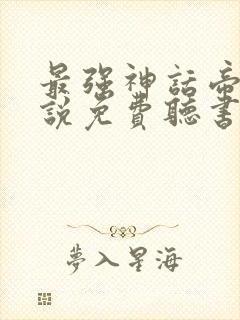 最強神話帝
說免費聽書
夢入星海